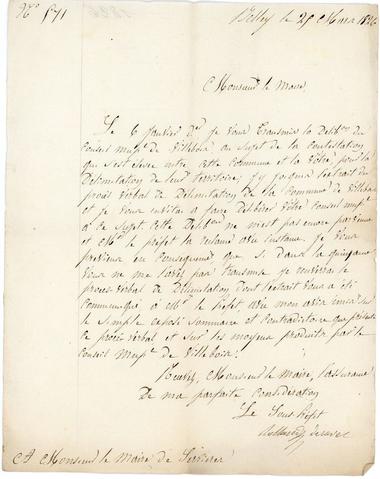 N° 571
Belley le 29 Mars 1826
Monsieur le Maire,
Le 6 Janvier dr je vous transmis la Delibon du
Conseil mupal de Villebois au sujet de la Contestation
qui s'est élevée entre cette Commune et la vôtre, pour la
Délimitation de leur territoire; j'y joignis l'extrait du
procès verbal de Délimitation de la Commune de Villebois
et je vous invitai a faire délibérer votre Conseil mupal
à ce Sujet cette Delibon ne m'est pas encore parvenue
et Mr le prefet la reclame avec instance. je vous
previens en Conséquence que si dans la quinzaine
vous ne me l'avez pas transmise je enverrai le
procès verbal de Délimitation dont l'extrait vous a été
Communiqué à Mr le Préfet avec mon avis
le Simple exposé Sommaire et Contradictoire que présente
ce procès verbal et Sur les moyens produits par le
Conseil Mupal de Villebois.
Recevez, Monsieur le Maire, l'assurance
De ma parfaite Considération
Le Sous Préfet
A Monsieur le Maire de